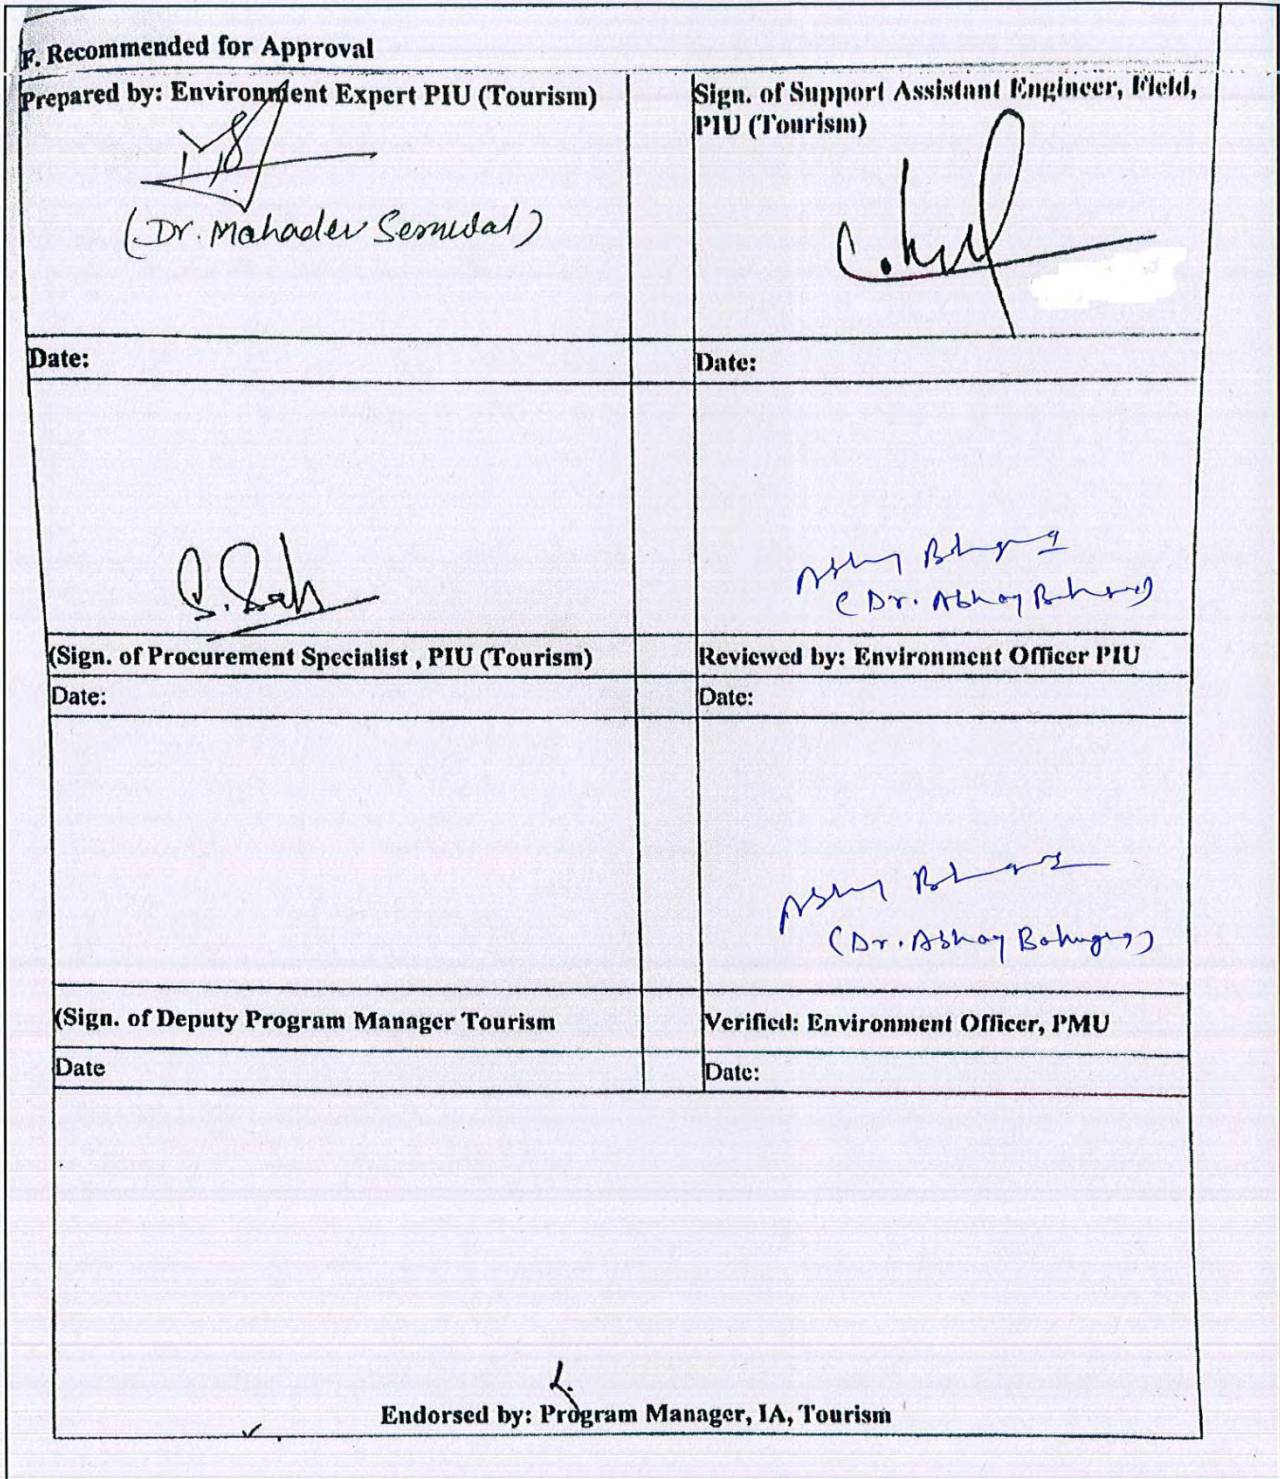 F. Recommended for Approval
Prepared by: Environment Expert PIU (Tourism)
Sign. of Support Assistant Engineer, Field,
PIU (Tourism)
(Dr. Mahadev
Date:
Date:
(Dr. Abhay
(Sign. of Procurement Specialist , PIU (Tourism)
Reviewed by: Environment Officer PIU
Date:
Date:
(Dr. Abhay Bahuguna)
(Sign. of Deputy Program Manager Tourism
Verified: Environment Officer, PMU
Date
Date:
Endorsed by: Program Manager, IA, Tourism